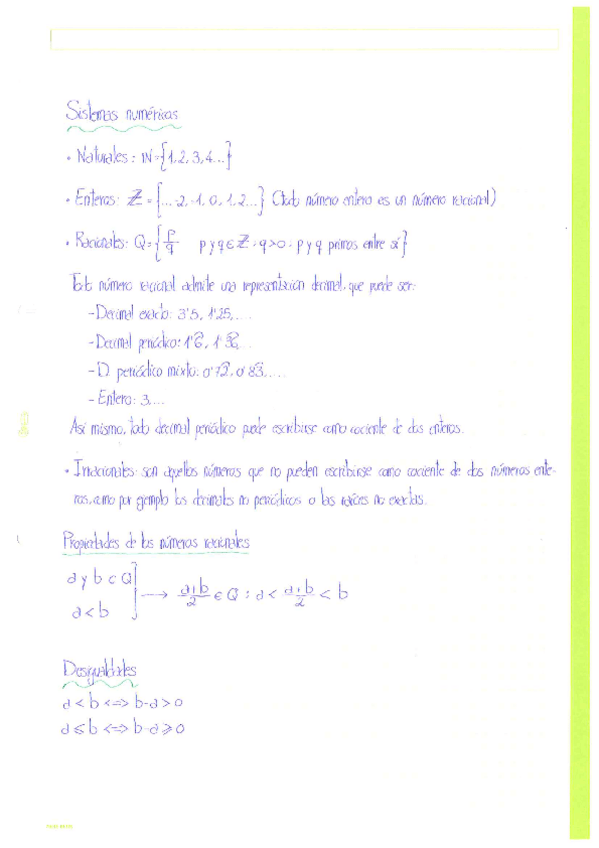 Sistemas numéricos
• Naturales: ℕ={1,2,3,4...}
• Enteros: ℤ={...-2,-1,0,1,2...} (todo número entero es un número racional)
• Racionales: Q={p/q p y q∈ℤ · q>0 · p y q primos entre sí}
Todo número racional admite una representación decimal, que puede ser:
-Decimal exacto: 3'5, 1'25,....
-Decimal periódico:
-D. periódico mixto:
- Entero: 3,...
Así mismo, todo decimal periódico puede escribirse como cociente de dos enteros.
• Irracionales: son aquellos números que no pueden escribirse como cociente de dos números ente-
ros, como por ejemplo los decimales no periódicos o las raíces no exactas.
Propiedades de los números racionales
a y b ∈ Q
a < b ] → a+b/2 ∈ Q : a < a+b/2 < b
Desigualdades
a < b <=> b-a > 0
a ⩽ b <=> b-a ⩾ 0